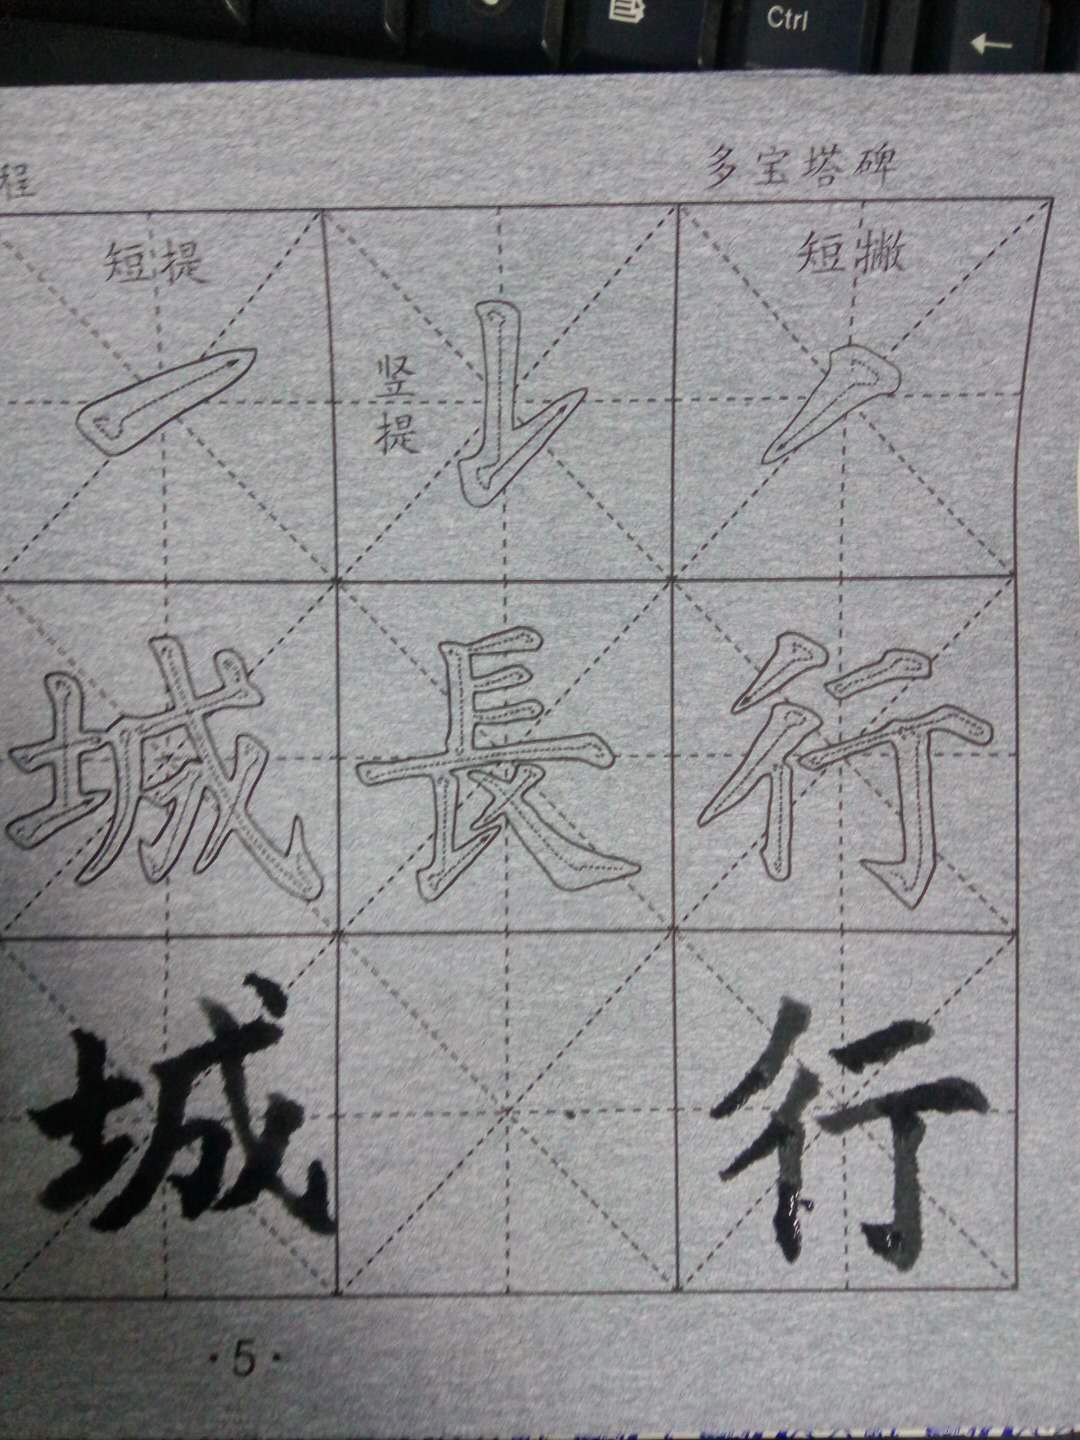 Ctrl
程 多宝塔碑
短提 竖提 短撇
城 長 行
城 行
·5·